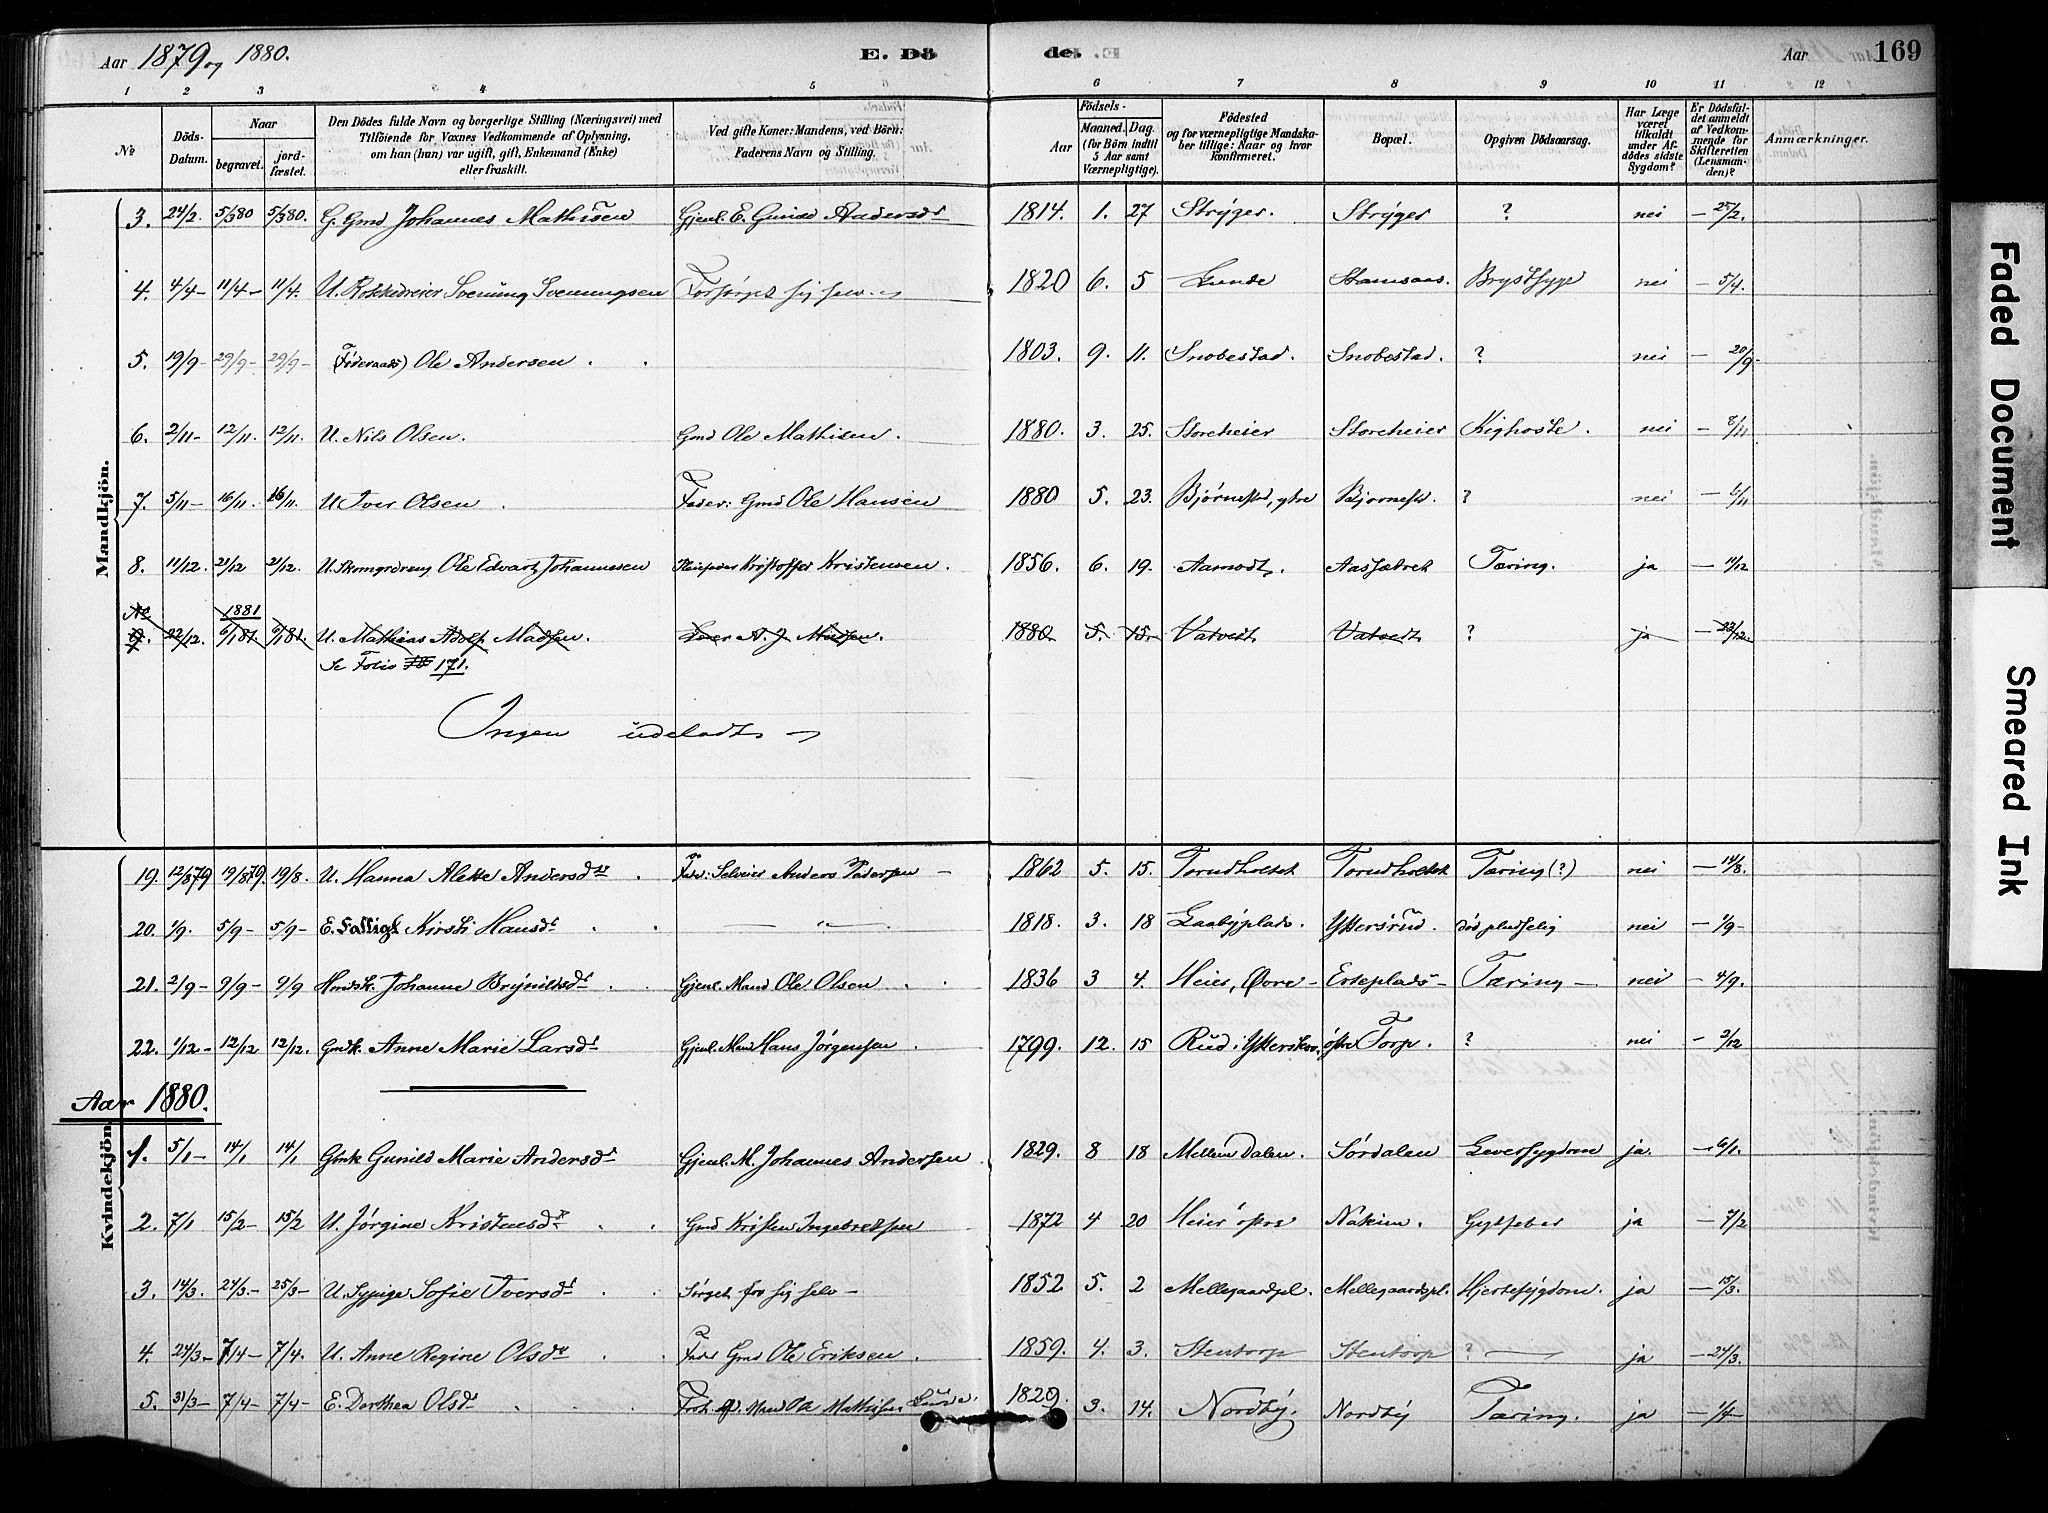 Aar 1879 og 1880. E. Dö de. Aar 169
1 2 3 4 5 6 7 8 9 10 11 12
No Döds-Datum. Naar begravet. jordfæstet. Den Dödes fulde Navn og borgerlige Stilling (Næringsvei) med Tilföiende for Voxnes Vedkommende af Oplysning, om han (hun) var ugift, gift, Enkemand (Enke) eller fraskilt. Ved gifte Koner: Mandens, ved Börn: Faderens Navn og Stilling. Födsels- Aar Maaned. Dag. (for Börn indtil 5 Aar samt Værnepligtige). Födested og for værnepligtige Mandskaber tillige: Naar og hvor konfirmeret. Bopæl. Opgiven Dödsaarsag. Har Læge været tilkaldt under Afdödes sidste Sygdom? Er Dödsfaldet anmeldt af Vedkommende for Skifteretten (Lensmanden)? Anmærkninger.
Mandkjön.
3. 24/2. 5/3 80 5/3 80. G. Gmd Johannes Mathisen Gjenl. E. Gunild Andersdr 1814. 1. 27 Strÿger. Strÿger ? nei – 25/2.
4. 4/4– 11/4– 11/4. U. Rokkedreier Svenung Svenungsen Forsørget sig selv. 1820 6. 5 Lunde Stamsaas. Brystsyge nei – 5/4.
5. 19/9– 29/9– 29/9– (Føderaads) Ole Andersen . . 1803. 9. 11. Snobestad. Snobestad. ? nei – 20/9–
6. 2/11– 12/11. 12/11. U. Nils Olsen. Gmd Ole Mathisen. 1880. 3. 25. Storeheier Storeheier Kighoste. nei – 8/11
7. 5/11– 16/11. 16/11. U. Iver Olsen . Fader: Gmd Ole Hansen 1880 5. 23. Bjørnestd, ytre Bjørnestd. ? nei – 6/11
8. 11/12. 21/12 21/12. U. Skomgrdreng Ole Edvart Johannesen Kristoffer Kristensen. 1856. 6. 19. Aamodt. Aassætret Tæring. ja – 11/12
No 1881
9. 22/12. 6/1 81. 6/1 81. U. Mathias Adolf Madsen. A. J. Madsen. 1880. 5. 15. Vatvedt Vatvedt ? ja – 23/12.
Se Folio 171.
Ingen udeladt
Kvindekjön.
19. 12/8 79 19/8 79. 19/8. U. Hanna Alette Andersdtr . Fader: Selveier Anders Pedersen – 1862 5. 15. Torudholtet Torudholtet Tæring (?) nei – 14/8.
20. 1/9. 5/9– 5/9– E. Fattigl. Kirsti Hansdr . . — „ — 1818. 3. 18 Laabÿplads. Yttersrud. død pludselig nei – 1/9–
21. 2/9– 9/9– 9/9 Husmdsk. Johanne Brÿnildsdr . Gjenl. Mand Ole Olsen . . 1836 3 4. Heier, Øvre – Erteplads – Tæring – nei – 4/9.
22. 1/12– 12/12 12/12. Gmdk. Anne Marie Larsdr Gjenl. Mand Hans Jørgensen. 1799. 12. 15 Rud i Ytterskov. østre Torp. ? nei – 2/12
Aar 1880.
1. 5/1– 14/1 14/1 Gmk Gunild Marie Andersdr Gjenl. M. Johannes Andersen 1829. 8 18 Mellem Dalen. Sørdalen Leversygdom ja. – 6/1.
2. 7/1 15/2– 15/2 U. Jørgine Kristensdr . . Gmd Kristen Ingebretsen 1872 4 20 Heier østre Nakim. Gyltfeber ja – 7/2
3. 14/3. 24/3.– 25/3– U. Sypige Sofie Iversdr . . Sørget for sig selv – 1852 5. 2 Mellegaardpl. Mellegaardspl. Hjertesÿgdom. ja – 15/3.
4. 24/3– 7/4– 7/4. U. Anne Regine Olsdr . . Fader Gmd Ole Eriksen. 1859. 4. 3. Stentorp Stentorp ? — ja – 24/3.
5. 31/3– 7/4– 7/4– E. Dorthea Olsdr . . . Mand Ole Mathisen Lunde. 1829. 3. 14. Nordbÿ. Nordbÿ Tæring. ja – 1/4–
Faded Document
Smeared Ink